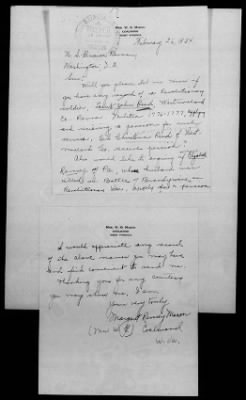 Mrs. W. G. Mason
Coalwood
West Virginia
February 26, 1934
U. S. Pension Bureau
Washington, D. C.
Sirs:
Will you please let me know if
you have any record of a Revolutionary
soldier, John Rush, Westmoreland
Co. Penna. Militia 1776-1777,
and receiving a pension for such
service. Did Christina Rush of West-
moreland Co. receive pension?
Also would like to enquire if
Ramsey of Pa., whose husband was
killed in Battle of Brandywine, in
Revolutionary War, apply for a pension
Mrs. W. G. Mason
Coalwood
West Virginia
I would appreciate any record
of the above names you may have
and find convenient to send me.
Thanking you for any courtesy
you may show me, I am
Yours very truly,
Margaret Ramsey Mason
(Mrs W. G.) Coalwood
W. Va.